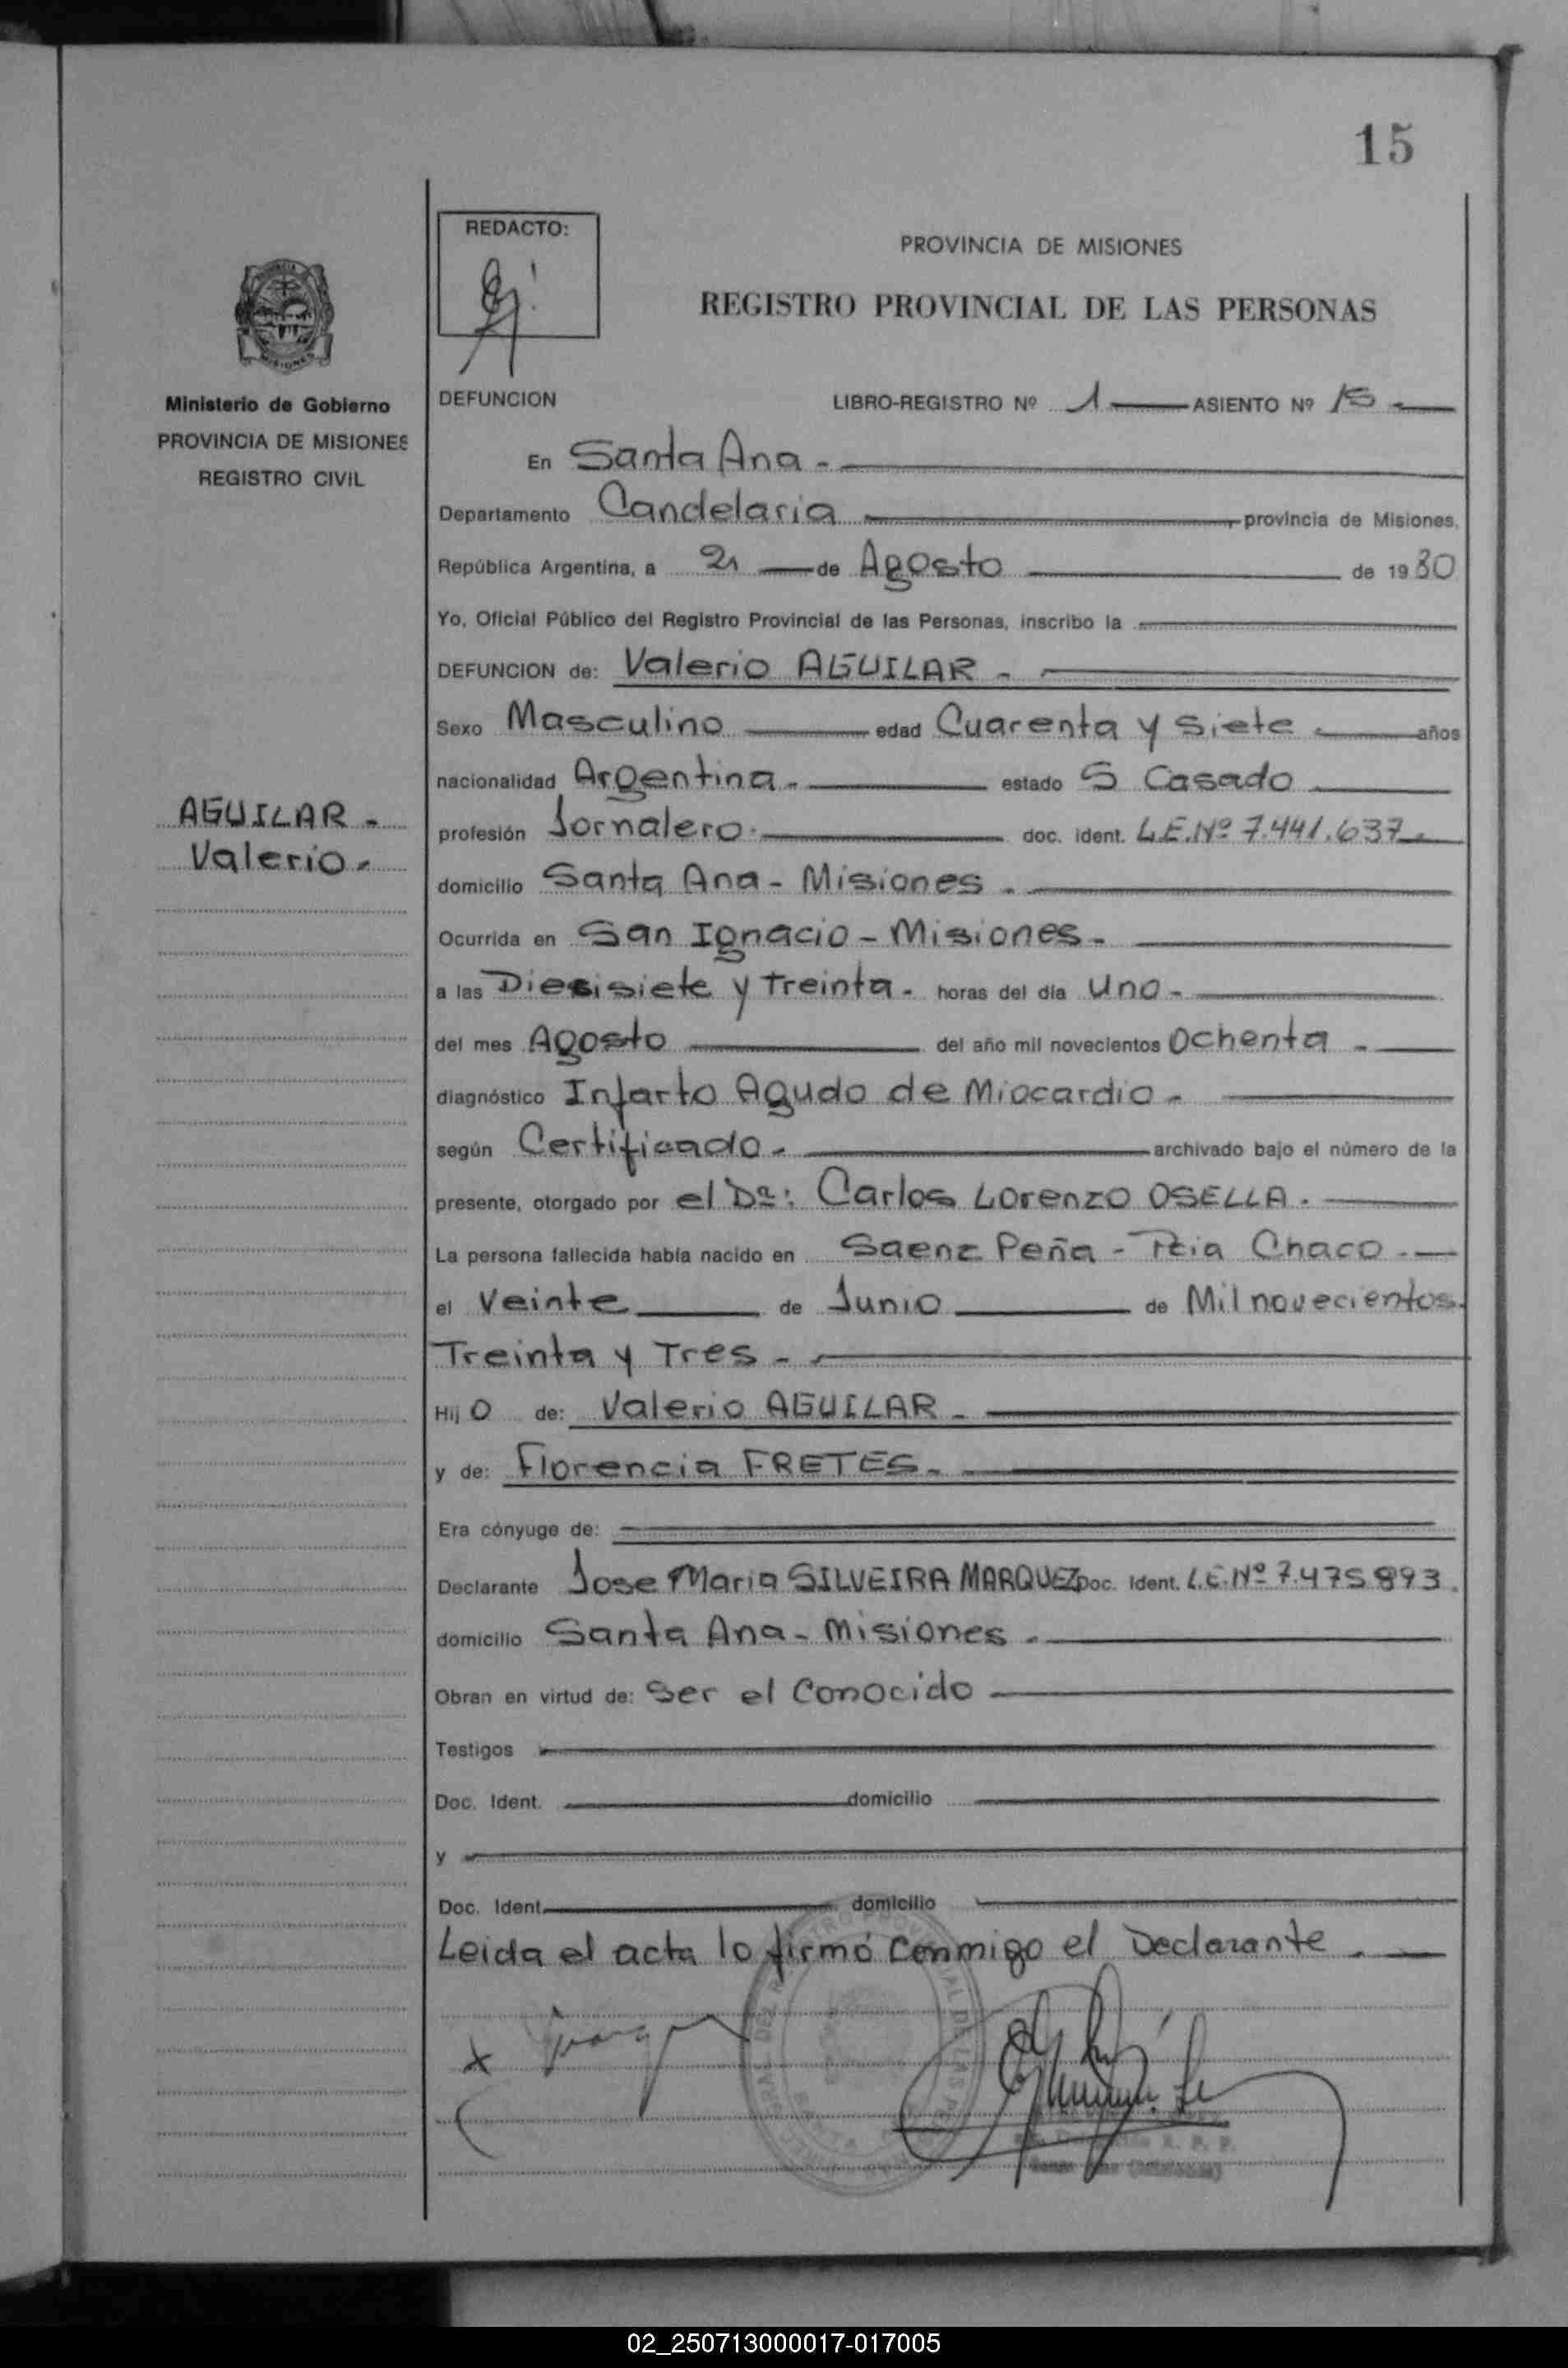 15
REDACTO:
PROVINCIA DE MISIONES
REGISTRO PROVINCIAL DE LAS PERSONAS
MISIONES
Ministerio de Gobierno
PROVINCIA DE MISIONES
REGISTRO CIVIL
AGUILAR -
Valerio -
DEFUNCION LIBRO-REGISTRO Nº 1 ASIENTO Nº 15 -
En Santa Ana -
Departamento Candelaria provincia de Misiones,
República Argentina, a 21 de Agosto de 1980
Yo, Oficial Público del Registro Provincial de las Personas, inscribo la
DEFUNCION de: Valerio AGUILAR -
Sexo Masculino edad Cuarenta y siete años
nacionalidad Argentina - estado S Casado
profesión Jornalero - doc. ident. L.E.Nº 7.441.637 -
domicilio Santa Ana - Misiones -
Ocurrida en San Ignacio - Misiones -
a las Diesisiete y treinta - horas del día uno -
del mes Agosto del año mil novecientos Ochenta -
diagnóstico Infarto Agudo de Miocardio -
según Certificado - archivado bajo el número de la
presente, otorgado por el Dº: Carlos Lorenzo OSELLA .
La persona fallecida había nacido en Saenz Peña - Pcia Chaco .
el Veinte de Junio de Mil novecientos
Treinta y Tres -
Hijo de: Valerio AGUILAR -
y de: Florencia FRETES -
Era cónyuge de:
Declarante Jose Maria SILVEIRA MARQUEZ Doc. Ident. L.E.Nº 7.475893.
domicilio Santa Ana - Misiones -
Obran en virtud de: Ser el Conocido
Testigos
Doc. Ident. domicilio
y
Doc. Ident. domicilio
Leida el acta lo firmó conmigo el Declarante .
x
02_250713000017-017005